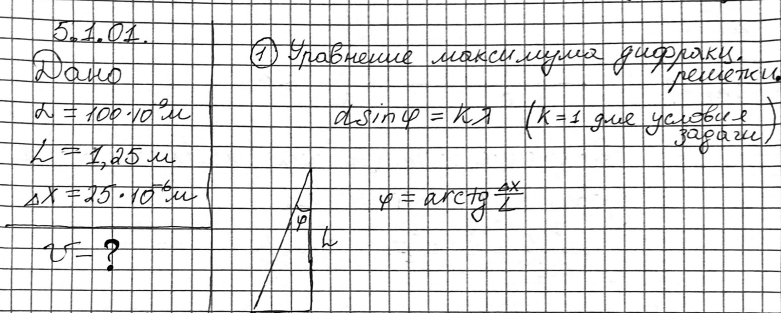 5.1.01.
Дано
d = 100·10⁻⁹ м
L = 1,25 м
Δx = 25·10⁻⁶ м
v - ?
① Уравнение максимума дифракц.
решетки.
d sin φ = kλ (k = 1 для условия
задачи)
φ = arctg Δx/L
φ
L